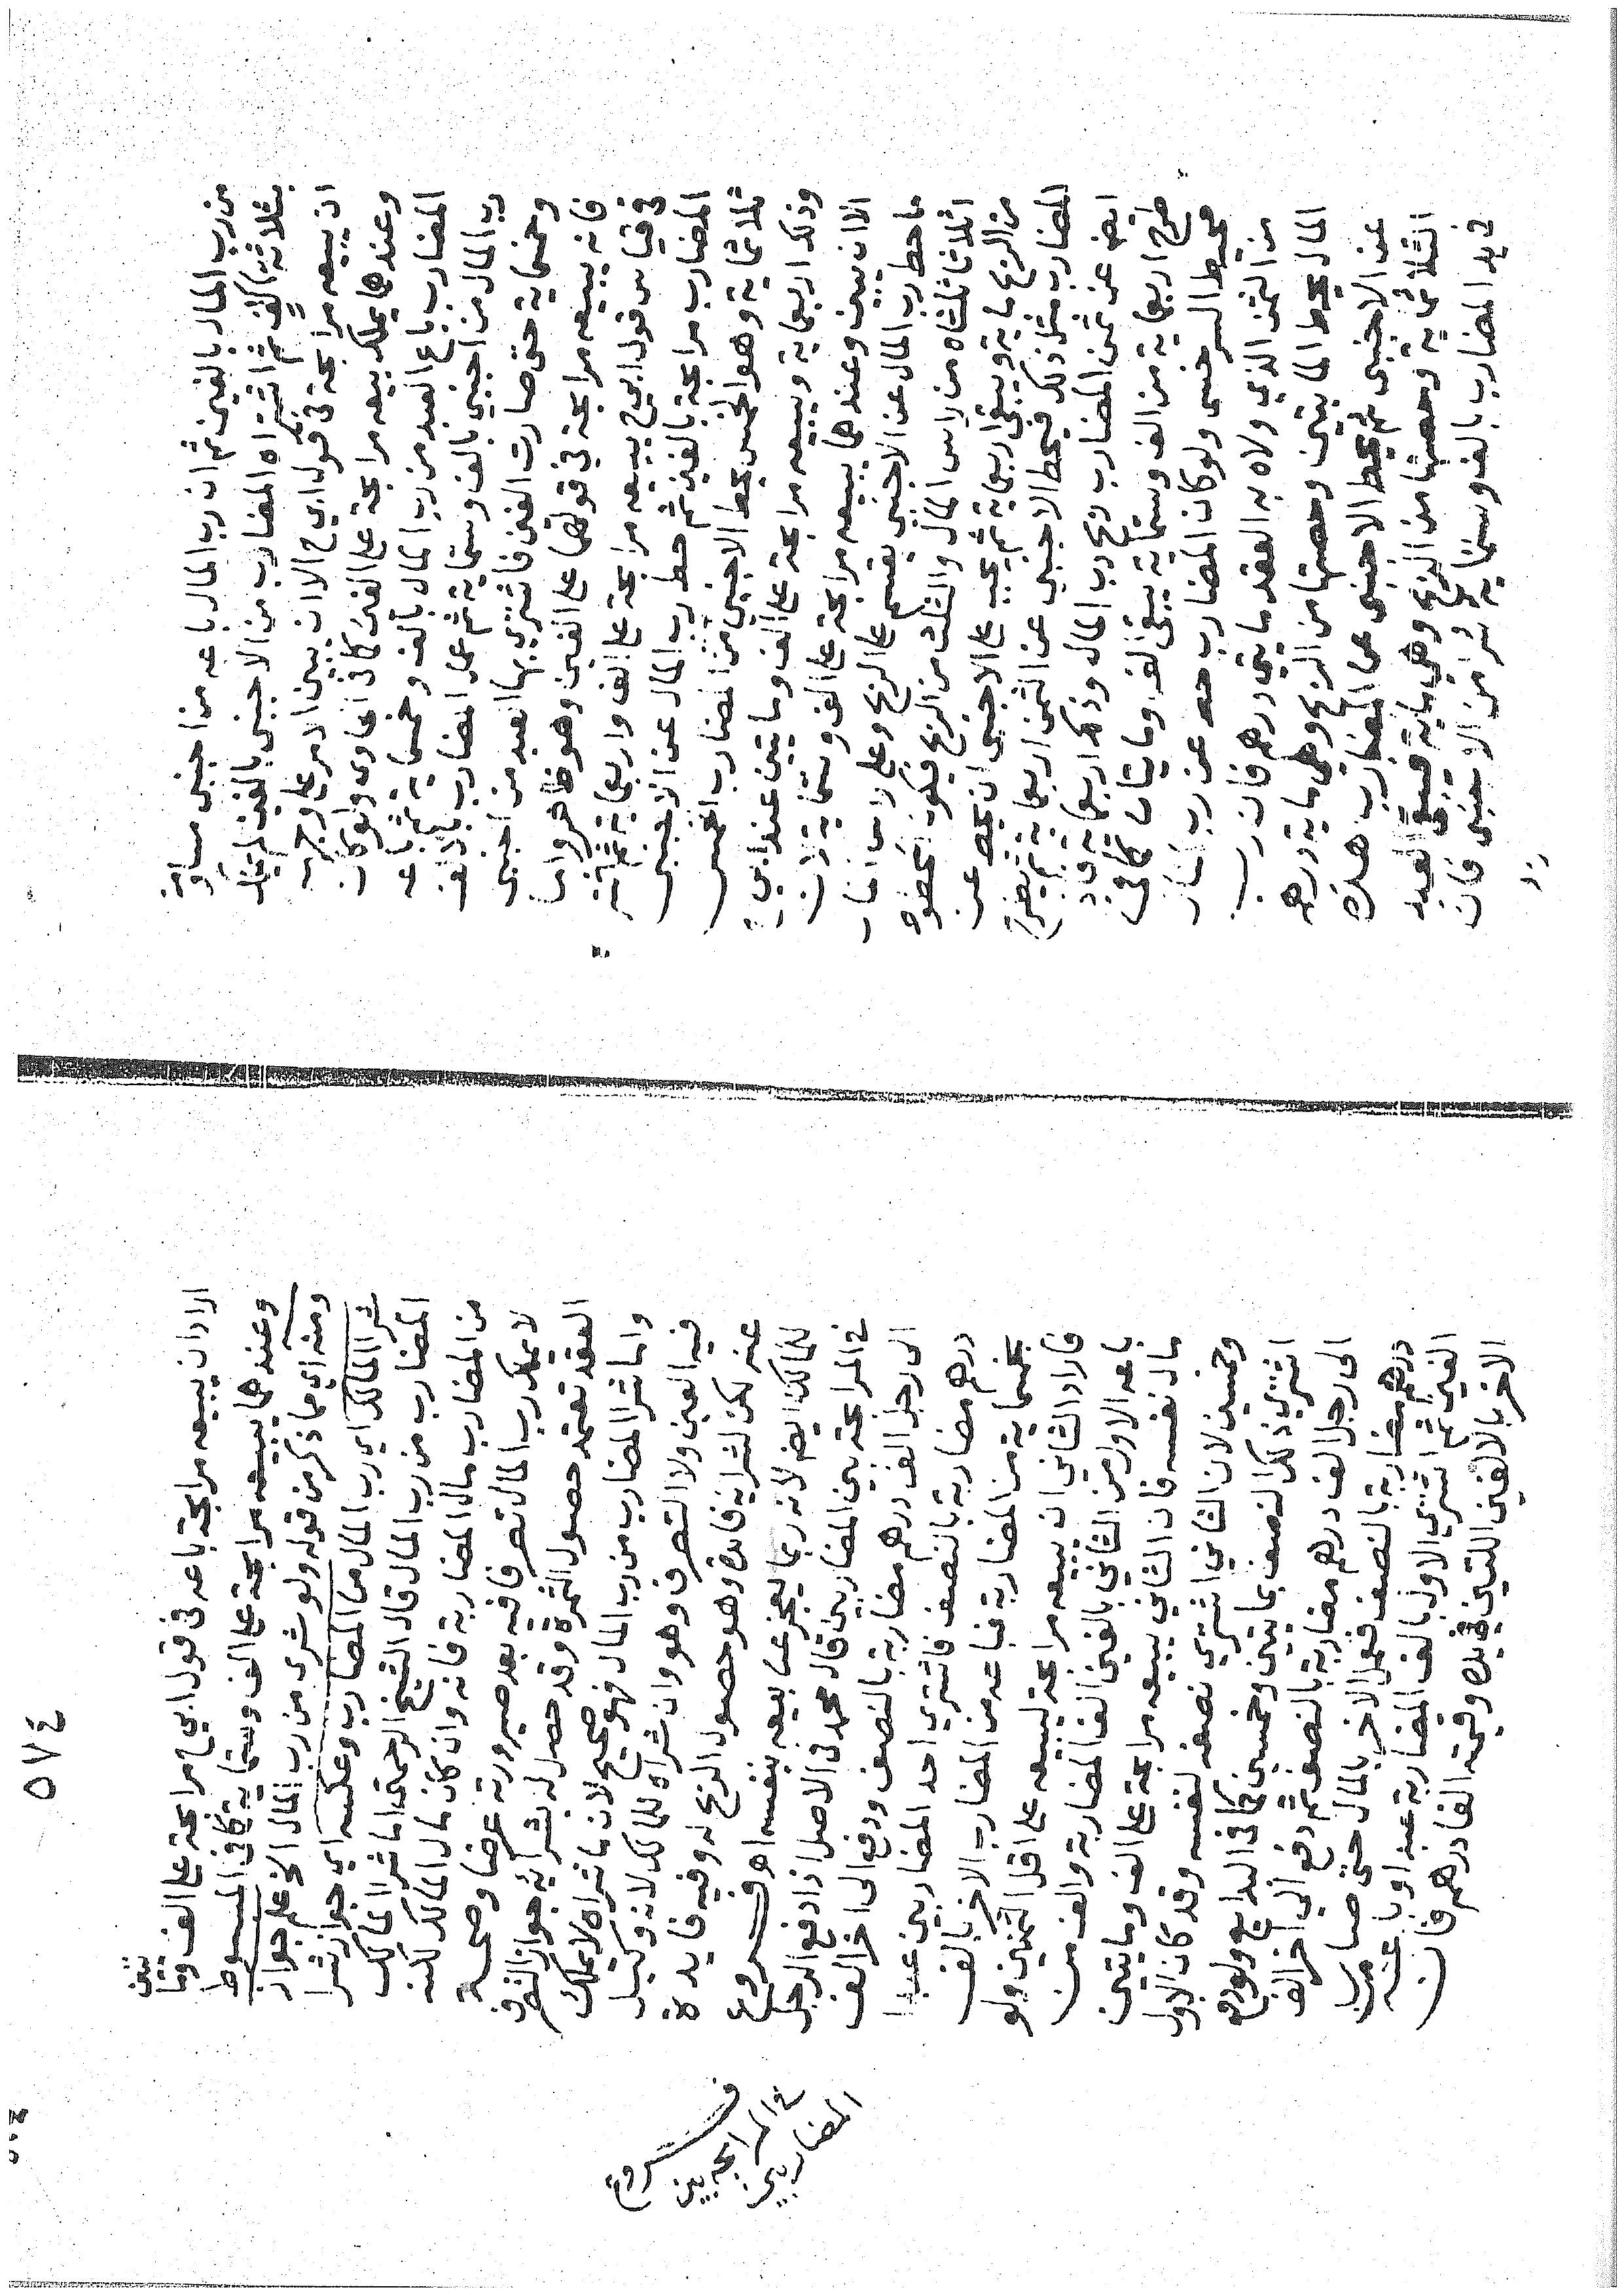 من رب المال بالفين ثم ان رب المال باعه من اجنبى مساومة
بثلاثة الف ثم اشتراه المضارب من الاجنبى بالفين لم يملك
ان يبيعه مرابحة فى قول ابى ح الا ان يبين الامر على وجهه
وعندهما يملك بيعه مرابحة على الفين كما فى الحاوى ولو كان
المضارب باع العبد من رب المال بالف وخمسماية ثم باعه
رب المال من اجنبي بالف وستماية ثم عمل المضارب بالالف
وخمسماية حتى صارت الفين فاشترى بها العبد من اجنبى
فانه يبيعه مرابحة فى قولهما على الفين وهو ظاهر واما
فى قياس قول ابى ح يبيعه مرابحة على الف واربعماية
المضارب مرابحة بالفين ثم حط رب المال عن الاجنبى
ثلاثماية وهو الخمس يحط الاجنبى من المضارب الخمس
وذلك اربعماية ويبيعه مرابحة على الف ومايتين عند ابى ح
الا ان يبين وعندهما يبيعه مرابحة على الف وستماية لان
ما حط رب المال عن الاجنبى يقسم على الربح وعلى راس المال
اثلاثا ثلثاه من راس المال والثلث من الربح فيكون المحطوط
من الربح ماية ويبقى اربعماية ثم يجب على الاجنبى ان يحط عن
المضارب مثل ذلك فيحط الاجنبى عن الثمن اربعماية ثم يطرح
ايضا عن ثمن المضارب ربح رب المال وذلك اربعماية فاذا
طرح اربعماية من الف وستماية يبقى الف ومايتان كما فى
محيط السرخسى ولو كان المضارب حط عن رب المال
من الثمن الذي ولاه به العقد مايتى درهم فان رب
المال يحط المايتين وحصتها من الربح وهى ماية درهم
عن الاجنبى ثم يحط الاجنبى عن المضارب هذه
الثلاثماية وحصتها من الربح وهى ماية فيبقى العبد
فى يد المضارب بالف وستماية شرا من الاجنبى فان
اراد ان يبيعه مرابحة باعه فى قول ابى ح مرابحة على الف ومايتين
وعندهما يبيعه مرابحة على الف وستماية كما فى المبسوط
ومنه اي مما ذكر من قوله ولو شرى من رب المال الخ علم جواز
شرا المالك اي رب المال من المضارب وعكسه اي جواز شرا
المضارب من رب المال قال الشيخ الرحمتى اما شرا المالك
من المضارب مال المضاربة فانه وان كان مال المالك لكنه
لا يملك رب المال تصرفا فيه بعد صيرورته عرضا وصحة
العقد تعتمد حصول الثمرة وقد حصل له بشرايه جواز التصرف
واما شرا المضارب من رب المال فهو صحيح لان ما شراه لا يملك
فيه العين ولا التصرف وهو وان شراه للمالك لانه وكيل
عنه لكن لشرايه فايدة وهو حصول الربح له وفيه فايدة
للمالك ايضا لانه ربما يعجز عن بيعه بنفسه اهـ فروع
فى المرابحة بين المضاربين قال محمد فى الاصل اذا دفع الرجل
الى رجل الف درهم مضاربة بالنصف ودفع الى اخر الف
درهم مضاربة بالنصف فاشترى احد المضاربين عبدا
بخمسماية من المضاربة فباعه من المضارب الاخر بالف
فاراد الثانى ان يبيعه مرابحة يبيعه على اقل الثمنين ولو
باعه الاول من الثانى بالفين الف المضاربة والف من
مال نفسه فان الثانى يبيعه مرابحة على الف ومايتين
وخمسين لان الثانى اشترى نصفه لنفسه وقد كان الاول
اشترى ذلك النصف بمايتين وخمسين كما فى البدايع ولو دفع
الى رجل الف درهم مضاربة بالنصف ثم دفع الى اخر الف
درهم مضاربة بالنصف فعمل الاخر بالمال حتى صار
الفين ثم اشترى الاول بالف المضاربة عبدا وباعه
الاخر بالالفين اللتين فى يده وقيمته الفا درهم فان
فروع
فى المرابحة بين
المضاربين
٥٧٤